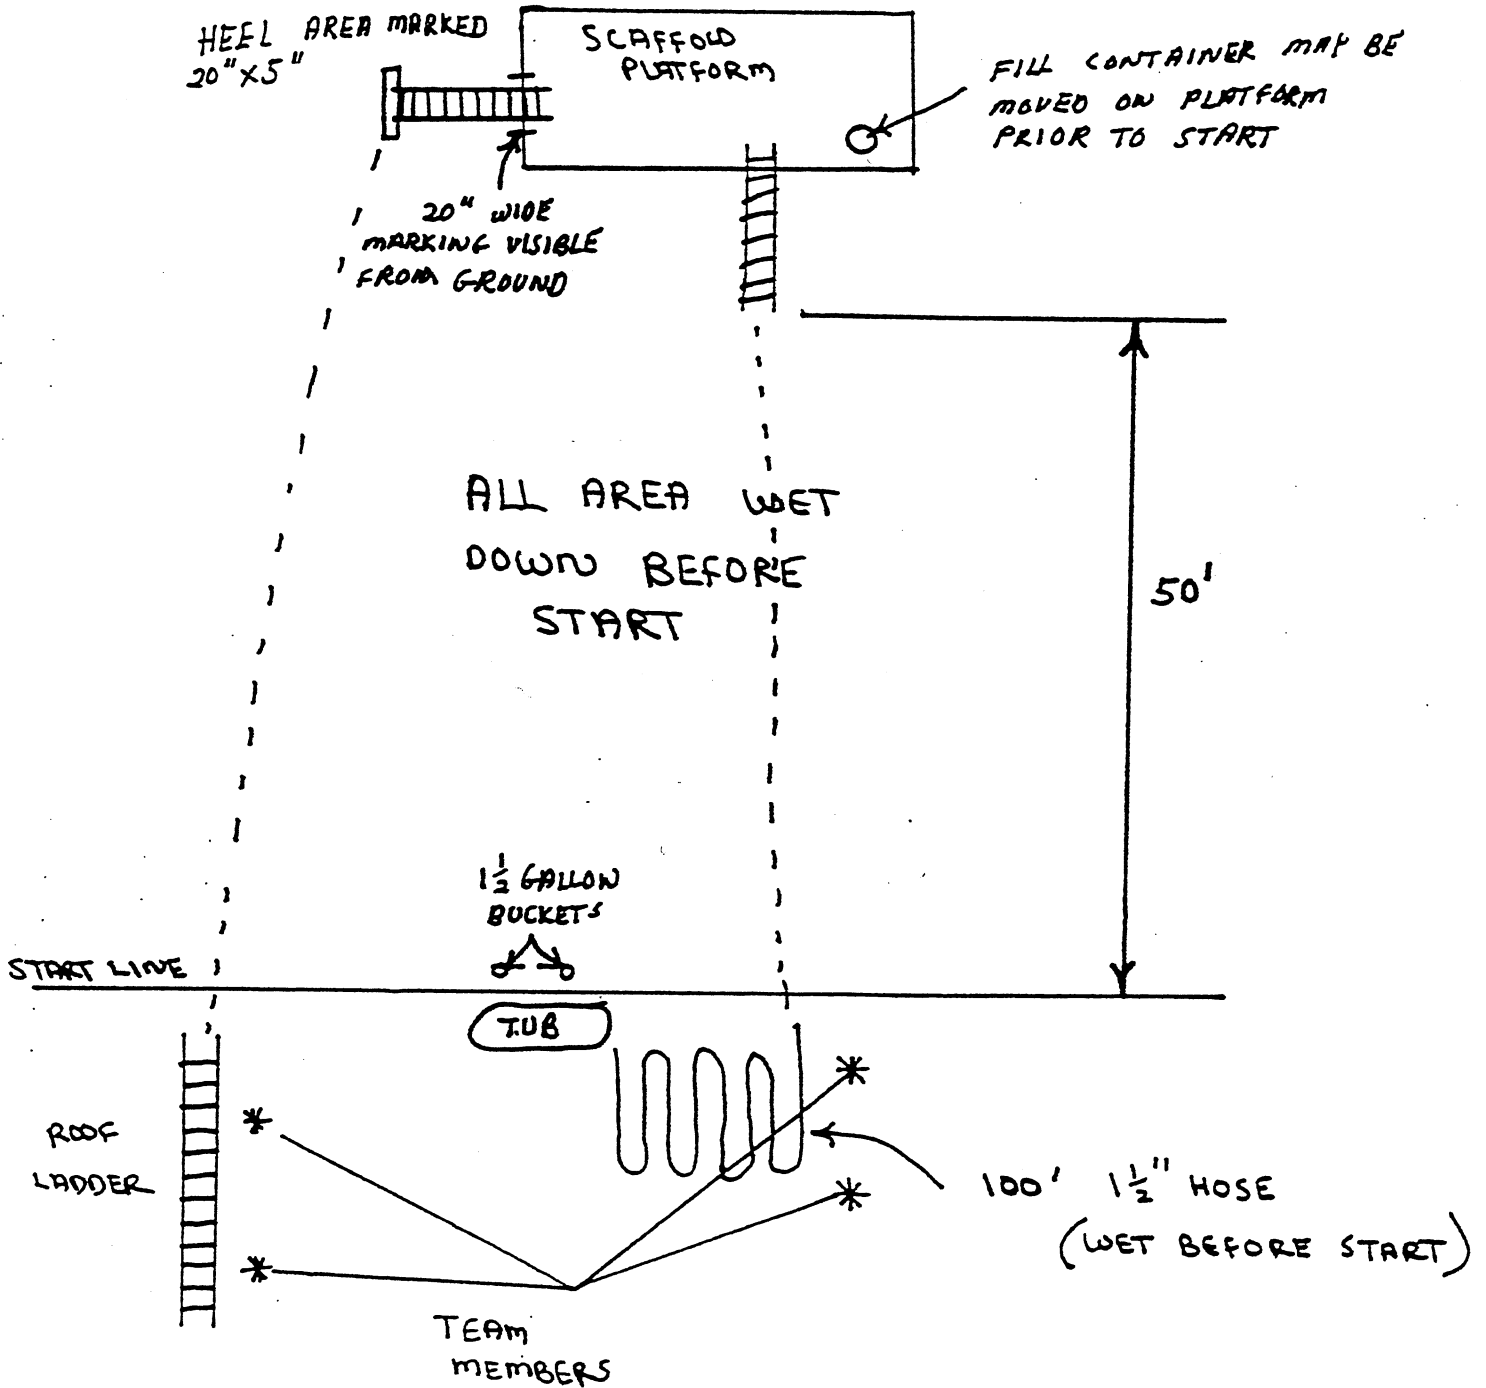 HEEL AREA MARKED
20" X 5"
SCAFFOLD
PLATFORM
FILL CONTAINER MAY BE
MOVED ON PLATFORM
PRIOR TO START
20" WIDE
MARKING VISIBLE
FROM GROUND
ALL AREA WET
DOWN BEFORE
START
50'
1 1/2 GALLON
BUCKETS
START LINE
TUB
ROOF
LADDER
100' 1 1/2" HOSE
(WET BEFORE START)
TEAM
MEMBERS